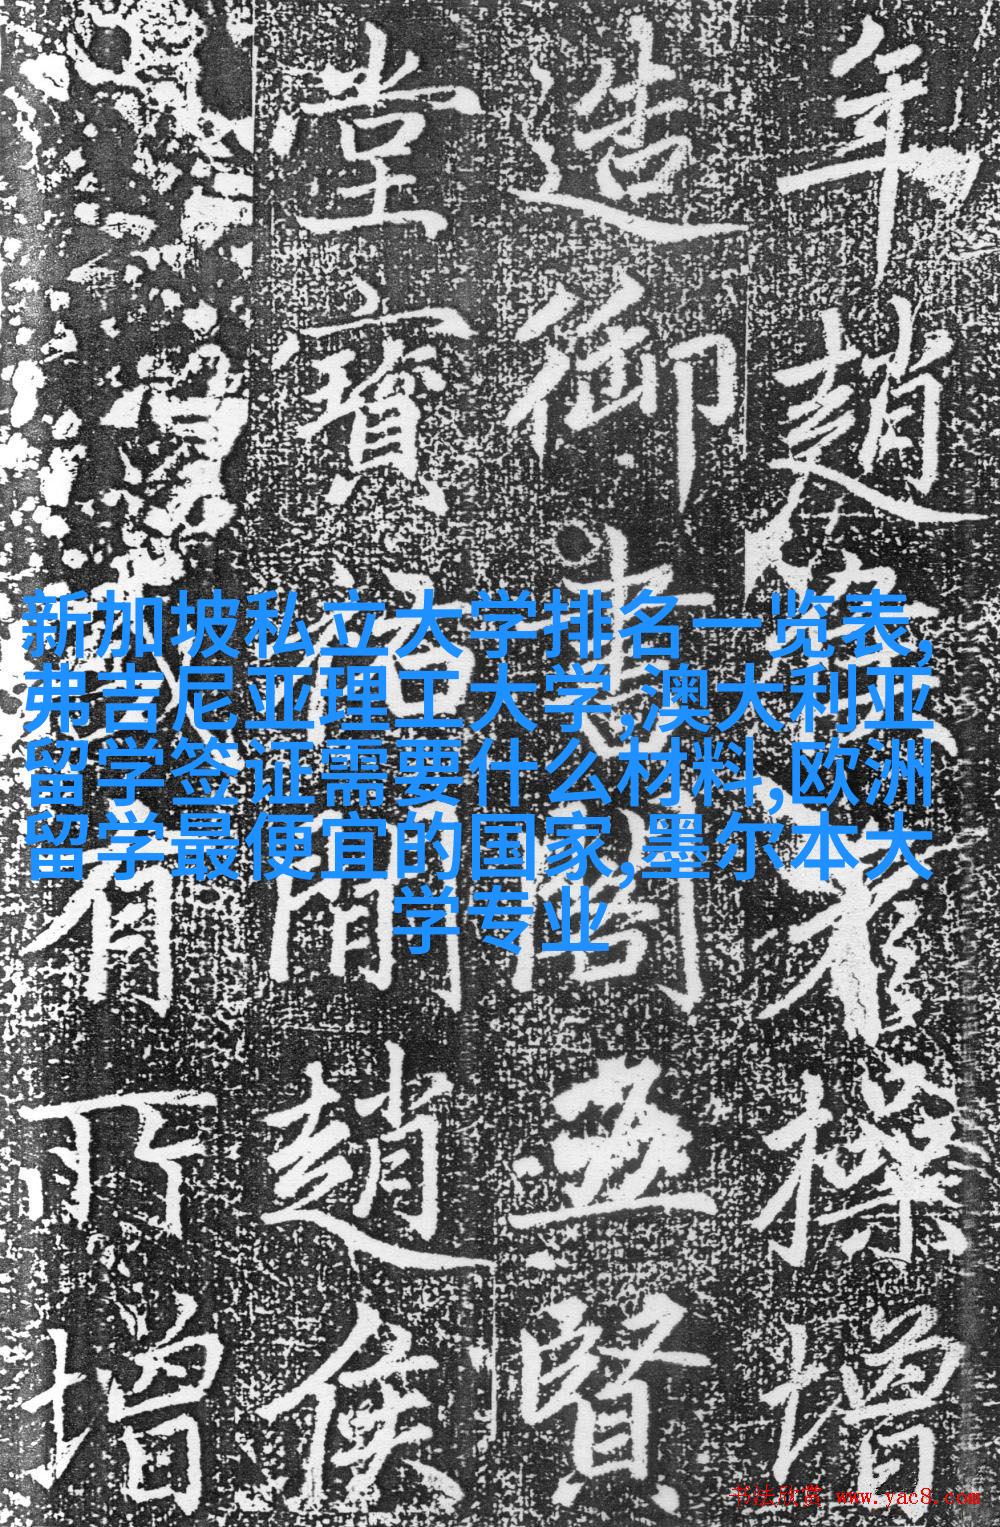 年趙操增
造御書閣五賢
堂寶趙侯
有所增
新加坡私立大学排名一览表,
弗吉尼亚理工大学,澳大利亚
留学签证需要什么材料,欧洲
留学最便宜的国家,墨尔本大
学专业
书法欣赏 www.yac8.com